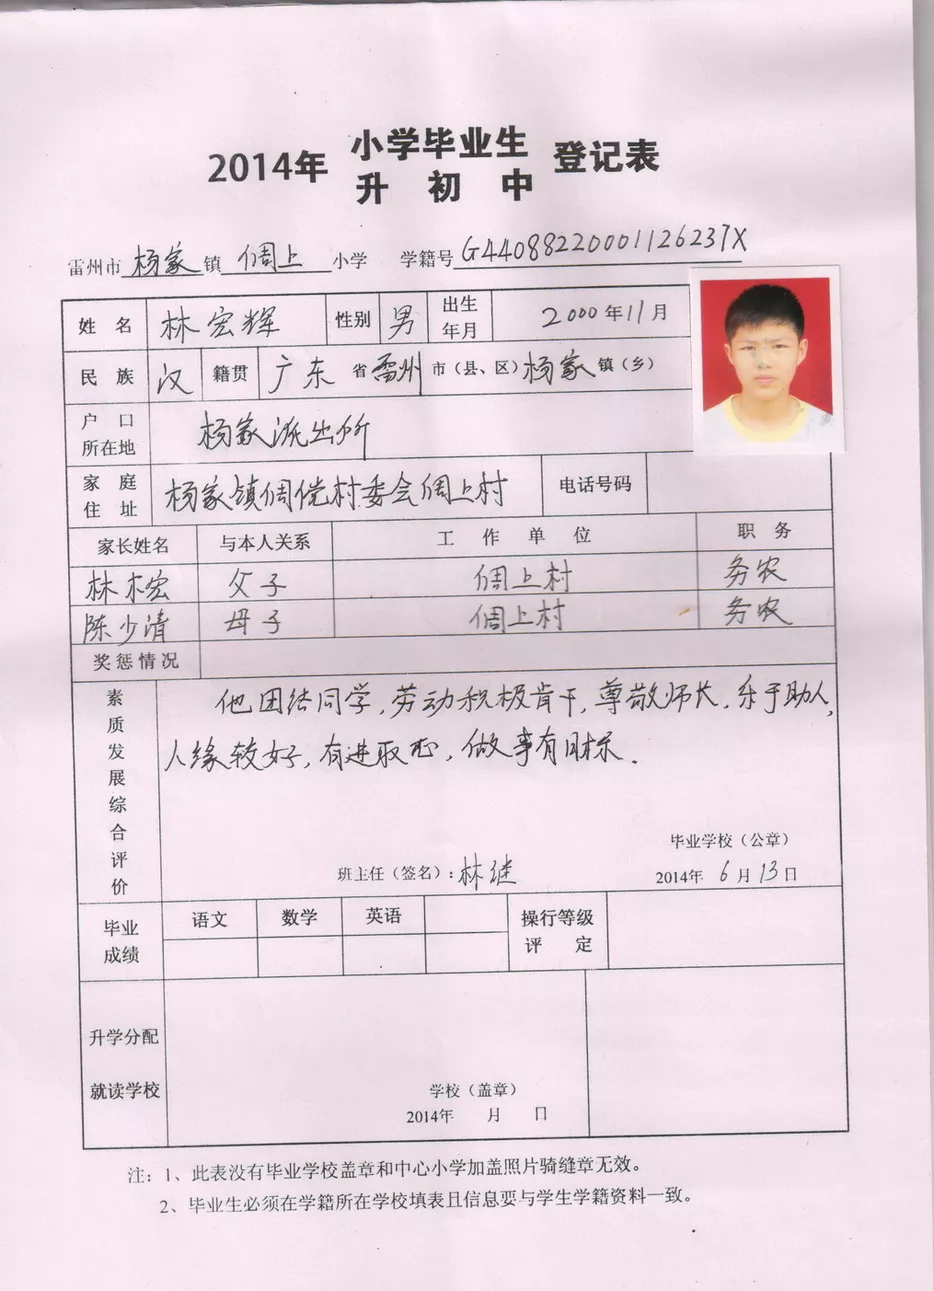 2014年 小学毕业生 登记表
升初中
雷州市杨家镇倜上小学 学籍号G44088220001126237X
姓名 林宏辉 性别 男 出生年月 2000年11月
民族 汉 籍贯 广东省雷州市(县、区)杨家镇(乡)
户口所在地 杨家派出所
家庭住址 杨家镇倜傥村委会倜上村 电话号码
家长姓名 与本人关系 工作单位 职务
林木宏 父子 倜上村 务农
陈少清 母子 倜上村 务农
奖惩情况
素质发展综合评价
他团结同学,劳动积极肯干,尊敬师长,乐于助人,
人缘较好,有进取心,做事有目标.
毕业学校(公章)
班主任(签名):林继 2014年6月13日
毕业成绩 语文 数学 英语 操行等级评定
升学分配
就读学校
学校(盖章)
2014年 月 日
注:1、此表没有毕业学校盖章和中心小学加盖照片骑缝章无效。
2、毕业生必须在学籍所在学校填表且信息要与学生学籍资料一致。